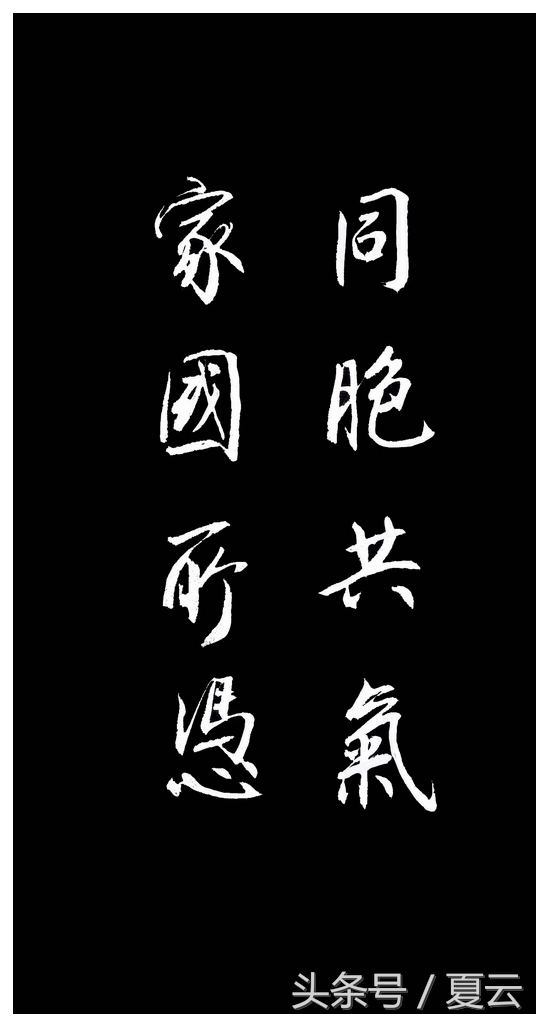 同胞共氣
家國所憑
头条号 / 夏云